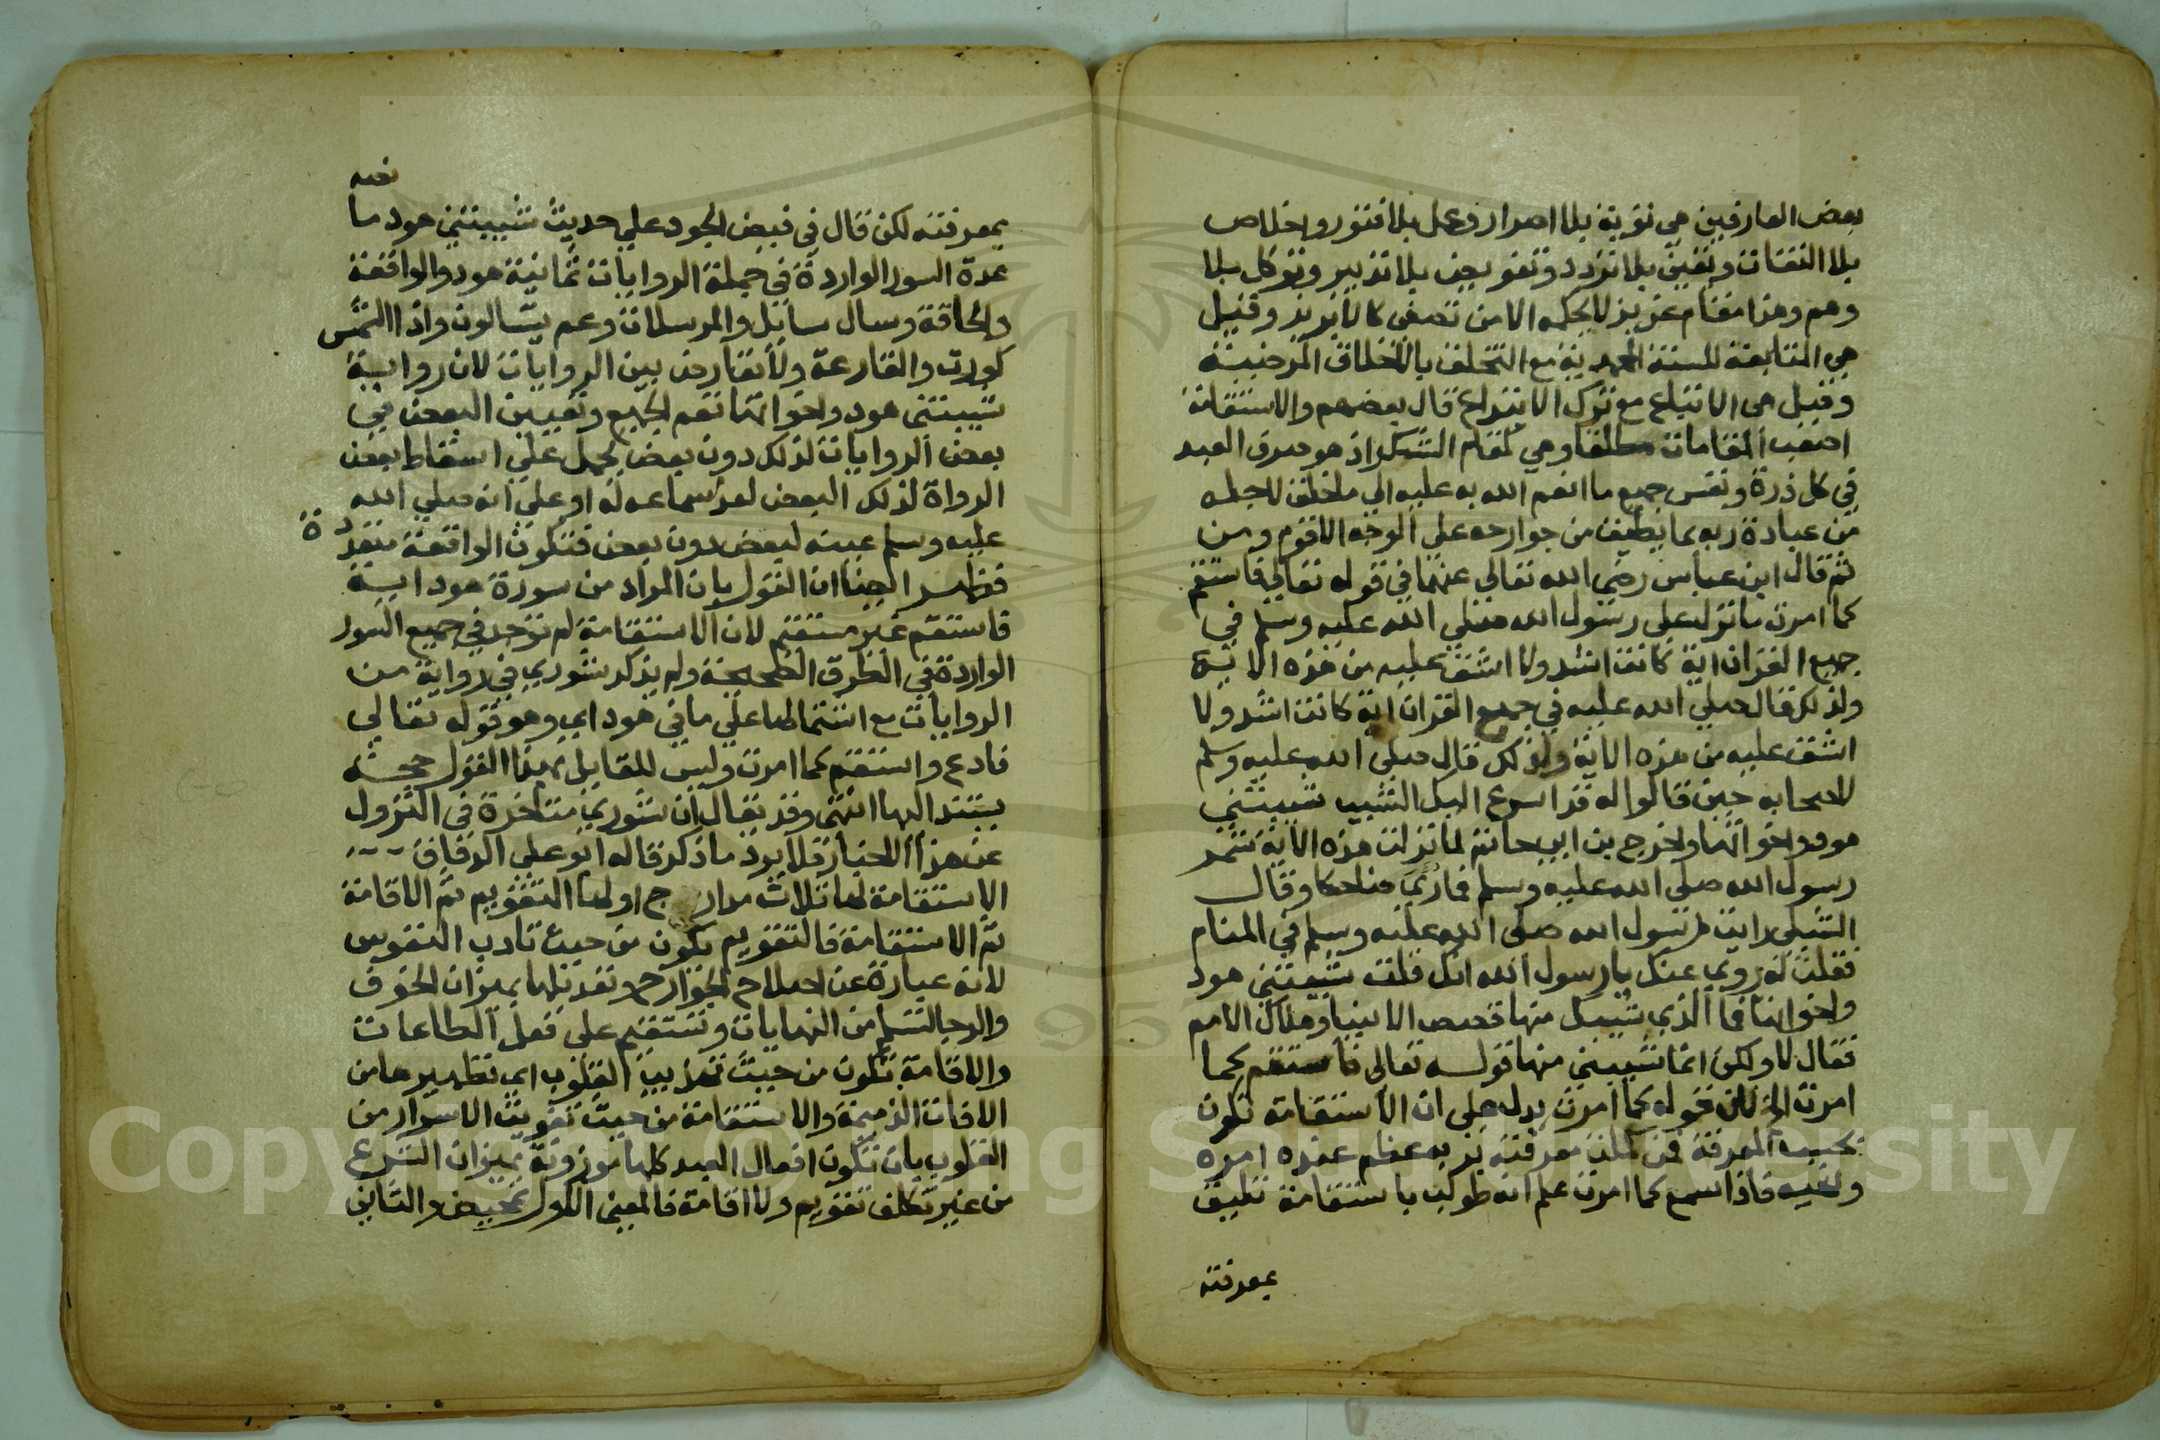 بعض العارفين هي توبة بلا اصرار وعمل بلا فتور واخلاص
بلا التفات ويقين بلا تردد وتفويض بلا تدبير وتوكل بلا
وهم وهذا مقام عزيز لا يحكمه الا من تصفى كالابريز وقيل
هي المتابعة للسنة المحمدية مع التخلق بالاخلاق المرضية
وقيل هي الاتباع مع ترك الابتداع قال بعضهم والاستقامة
اصعب المقامات مطلقا وهي كمقام الشكر اذ هو صرف العبد
في كل ذرة ونفس جميع ما انعم الله به عليه الي ما خلق لاجله
من عبادة ربه بما يطيق من جوارحه علي الوجه الاقوم ومن
ثم قال ابن عباس رضي الله تعالي عنهما في قوله تعالي فاستقم
كما امرت ما نزل علي رسول الله صلي الله عليه وسلم في
جميع القران اية كانت اشد ولا اشق عليه من هذه الاية
ولذلك قال صلي الله عليه في جميع القران اية كانت اشد ولا
اشق عليه من هذه الاية ولذلك قال صلي الله عليه وسلم
لاصحابه حين قالوا له قد اسرع اليك الشيب شيبتني
هود واخواتها واخرج بن ابي حاتم لما نزلت هذه الاية شمر
رسول الله صلي الله عليه وسلم فما رئي ضاحكا وقال
الشبلي رايت رسول الله صلي الله عليه وسلم في المنام
فقلت له روي عنك يا رسول الله انك قلت شيبتني هود
واخواتها فما الذي شيبك منها قصص الانبيا وهلاك الامم
فقال لا ولكن انما شيبني منها قوله تعالي فاستقم كما
امرت لان قوله كما امرت يدل علي ان الاستقامة تكون
بحسب المعرفة فمن كملت معرفته بربه عظم عنده امره
ونهيه فاذا سمع كما امرت علم انه طولب باستقامة تليق
بمعرفته
بمعرفته لكن قال في فيض الجود علي حديث شيبتني هود ما نصه
عدة السور الواردة في جملة الروايات ثمانية هود والواقعة
والحاقة وسال سايل والمرسلات وعم يتسالون واذا الشمس
كورت والقارعة ولا تعارض بين الروايات لان رواية
شيبتني هود واخواتها تعم الجميع وتعيين البعض في
بعض الروايات لذلك دون بعض يحمل علي اسقاط بعض
الرواة لذلك البعض لعدم سماعه له او علي انه صلي الله
عليه وسلم عينه لبعض دون بعض فتكون الواقعة متعددة
فظهر ايضا ان القول بان المراد من سورة هود اية
فاستقم غير مستقيم لان الاستقامة لم توجد في جميع السور
الواردة في الطرق الصحيحة ولم يذكر شوري في رواية من
الروايات مع اشتمالها علي ما في هود اي وهو قوله تعالي
فادع واستقم كما امرت وليس للقايل بهذا القول حجة
يستند اليها انتهي وقد يقال ان شوري متاخرة في النزول
عن هذا الاخبار فلا يرد ما ذكر قاله ابو علي الدقاق
الاستقامة لها ثلاث مدارج اولها التقويم ثم الاقامة
ثم الاستقامة فالتقويم يكون من حيث تاديب النفوس
لانه عبارة عن اصلاح الجوارح وتعديلها بميزان الخوف
والرجا لتسلم من النهايات وتستقيم علي فعل الطاعات
والاقامة تكون من حيث تهذيب القلوب اي تطهيرها من
الافات الذميمة والاستقامة من حيث تقويت الاسرار من
القلوب بان تكون افعال العبد كلها موزونة بميزان الشرع
من غير تكلف تقويم ولا اقامة فالمعني الاول تمحيض والثاني